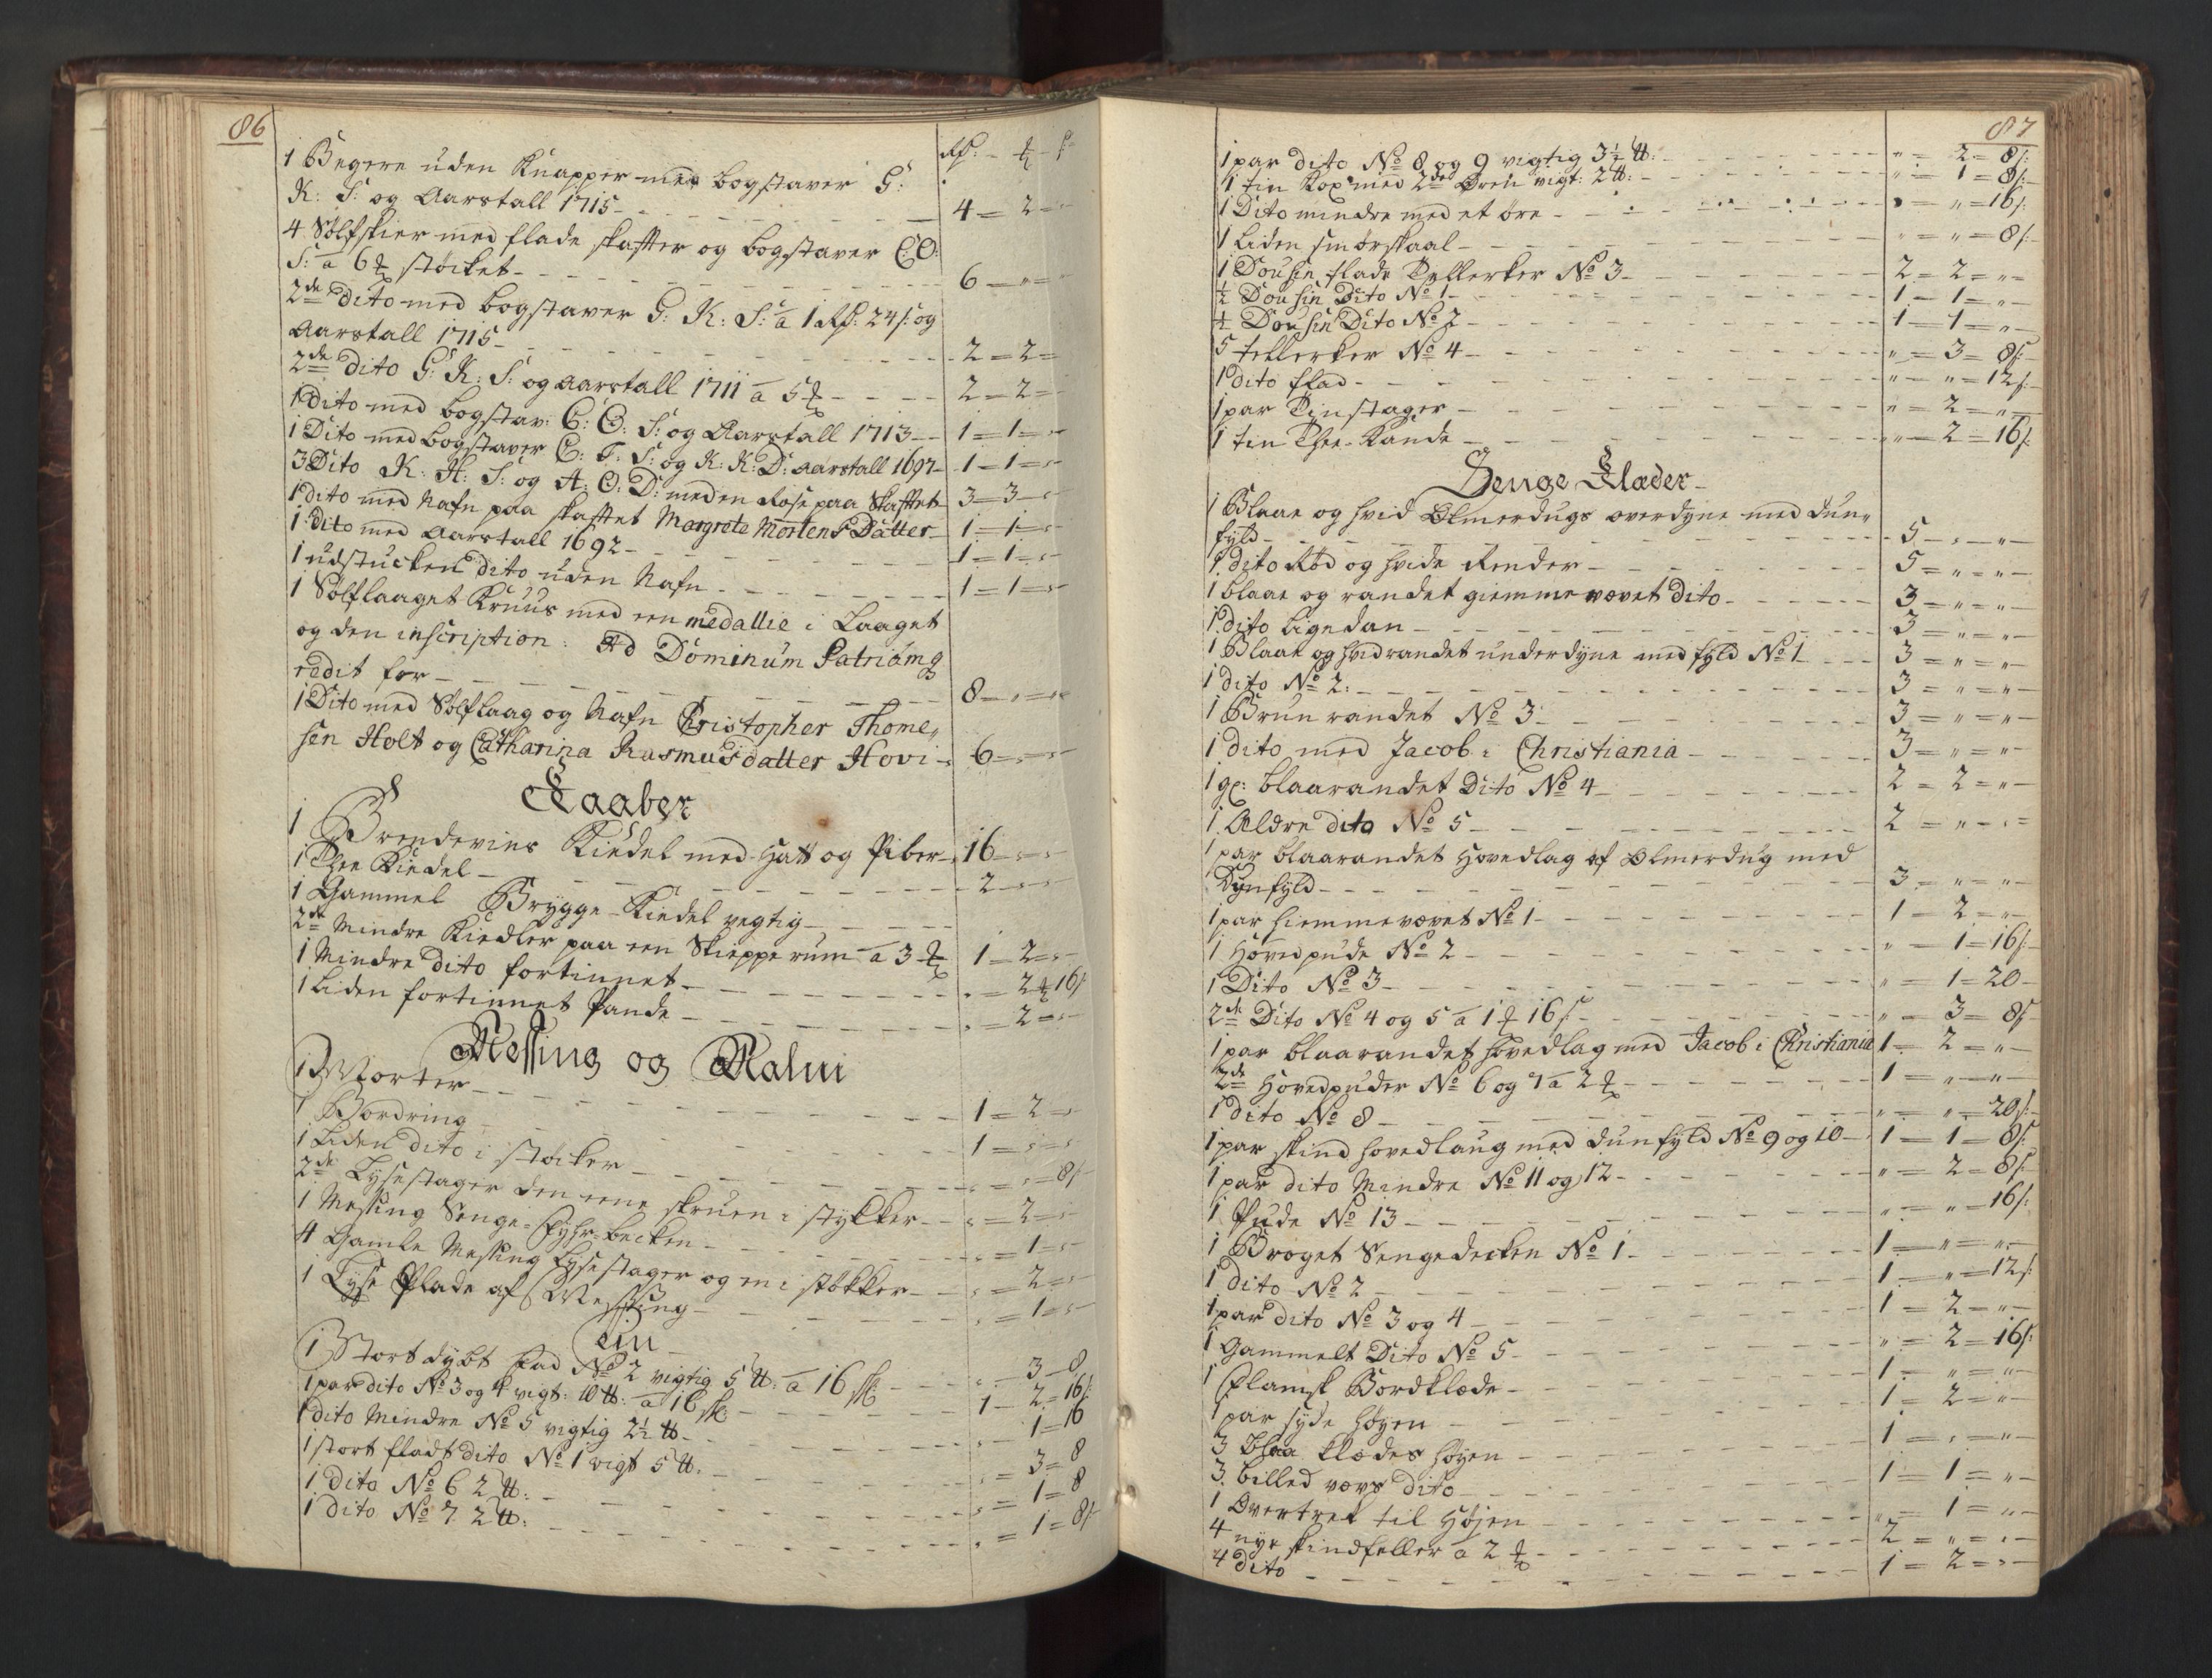 86
Rd: - ƺ - ſ
1 Begere uden Knapper med bogstaver G:
K: S: og Aarstall 1715 - - - 4 = 2 = -
4 Sølfskier med flade skaffter og bogstaver C: O:
S: a 6 ƺ støcket - - - 6 - " = -
2de dito med bogstaver G: K: S: a 1 Rd: 24 ſ: og
Aarstall 1715 - - - 2 = 2 =
2de dito G: K: S: og aarstall 1711 a 5 ƺ - - - 2 = 2 = -
1 dito med bogstav: C: O: S: og Aarstall 1713 - - 1 = 1 = -
1 Dito med bogstaver C: T: S: og K: K: D: aarstall 1697 - 1 = 1 = -
3 Dito K: H: S: og A: O: D: med en Rose paa Skafftet 3 = 3 - -
1 dito med Nafn paa skafftet Margrete Mortens Datter - 1 = 1 = -
1 dito med Aarstall 1692 - - - 1 = 1 = -
1 udstucken dito uden Nafn - - - 1 = 1 = -
1 Sølflaaget Kruus med een medallie i Laaget
og den inscription: Ad Dominum Patriamq
redit for - - - 8 - " = -
1 Dito med Sølflaag og Nafn Christopher Thome„
sen Holt og Catharina Rasmusdatter Hovi - 6 - " -
Kaaber
1 Brendevins Kiedel med Hatt og Piber - 16 - " -
1 Thee Kiedel - - - 2 - " -
1 Gammel Brygge-Kiedel vegtig - - -
2de Mindre Kiedler paa een Skieppe rum a 3 ƺ 1 = 2 = -
1 Mindre dito fortinnet - - - " = 2 ƺ 16 ſ
1 Liden fortinnet Pande - - - " = 2 = -
Messing og Malm
1 Morter - - - 1 = 2 = -
1 Bordring - - - 1 = " = -
1 Liden dito i støcker - - - " = " = 8 ſ
2de Lysestager den eene skruen i stykker - - " = 2 = -
1 Messing Senge-Fyhr-becken - - - " = 1 = -
4 Gamle Messing Lysestager og en i støkker - - " = 2 = -
1 Lyse Plade af Messing - - - " = 1 = -
Tin
1 Stort dybt Fad No 2 vigtig 5 ℔: a 16 sk: - - " 3 = 8
1 par dito No 3 og 4 vigt: 10 ℔: a 16 sk: - - 1 - 2 = 16 ſ
1 dito Mindre No 5 vigtig 2½ ℔ - - - " 1 = 16
1 stort fladt dito No 1 vigt 5 ℔: - - - " = 3 = 8
1 dito No 6 2 ℔: - - - " = 1 = 8
1 dito No 7 2 ℔: - - - " = 1 = 8 ſ
87
1 par dito No 8 og 9 vigtig 3½ ℔: - - - " = 2 = 8 ſ:
1 tin Kop med 2de Øren vigt: 2 ℔: - - - " = 1 = 8 ſ:
1 Dito mindre med et øre - - - " = " = 16 ſ:
1 Liden smørskaal - - - " = " = 8 ſ:
1 Dousin flade Tellerker No 3 - - - 2 = 2 = " -
½ Dousin Dito No 1 - - - 1 = 1 = " -
½ Dousin Dito No 2 - - - 1 = 1 = " -
5 tellerker No 4 - - - " = 3 = 8 ſ: -
1 dito flad - - - " = " = 12 ſ: -
1 par Tinstager - - - " = 2 = " -
1 tin Thee-Kande - - - " = 2 = 16 ſ:
Senge Klæder -
1 Blaae og hvid Olmerdugs overdyne med dun„
fyld - - - 5 - " = " -
1 dito Rød og hvide Render - - - 5 = " = " -
1 blaae og randet hiemmevævet dito - - - 3 = " = " -
1 dito ligedan - - - 3 = " = " -
1 Blaae og hvidrandet underdyne med fyld No 1 - - - 3 = " = " -
1 dito No 2: - - - 3 = " = " -
1 Brun randet No 3 - - - 3 = " = " -
1 dito med Jacob i Christiania - - - 3 = " = " -
1 gl: blaarandet Dito No 4 - - - 2 = 2 = " -
1 Ældre dito No 5 - - - 2 = " = " =
1 par blaarandet Hovedlag af Olmerdug med
Dynfyld - - - 3 = " = " -
1 par hiemmevævet No 1 - - - 1 = 2 = " -
1 Hovedpude No 2 - - - " = 1 = 16 ſ: -
1 Dito No 3 - - - " = 1 = 20 -
2de Dito No 4 og 5 a 1 ƺ 16 ſ - - - " = 3 = 8 ſ -
1 par blaarandet hovedlag med Jacob i Christiania 1 = 2 = " -
2de Hovedpuder No 6 og 7 a 2 ƺ - - - 1 = " = " -
1 dito No 8 - - - " = " = 20 ſ: -
1 par skind hovedlaug med dunfyld No 9 og 10 - 1 = 1 = 8 ſ: -
1 par dito Mindre No 11 og 12 - - - " = 2 = 8 ſ: -
1 Pude No 13 - - - " = " = 16 ſ:
1 Broget Sengedecken No 1 - - - 1 = " = " -
1 dito No 2 - - - 1 = " = 12 ſ:
1 par dito No 3 og 4 - - - 1 = 2 = " -
1 Gammelt Dito No 5 - - - " = 2 = 16 ſ:
1 Flamsk Bordklæde - - - 1 = " = " -
1 par syde Høyen - - - 1 = 2 = " -
3 blaa klædes høyen - - - 1 = " = " -
3 billed vævs dito - - - 1 = 1 = " -
1 Overtrek til Høyen - - - " = 1 = " -
4 nye skindfeller a 2 ƺ - - - 2 = " = " -
4 dito - - - 1 = 2 = " -